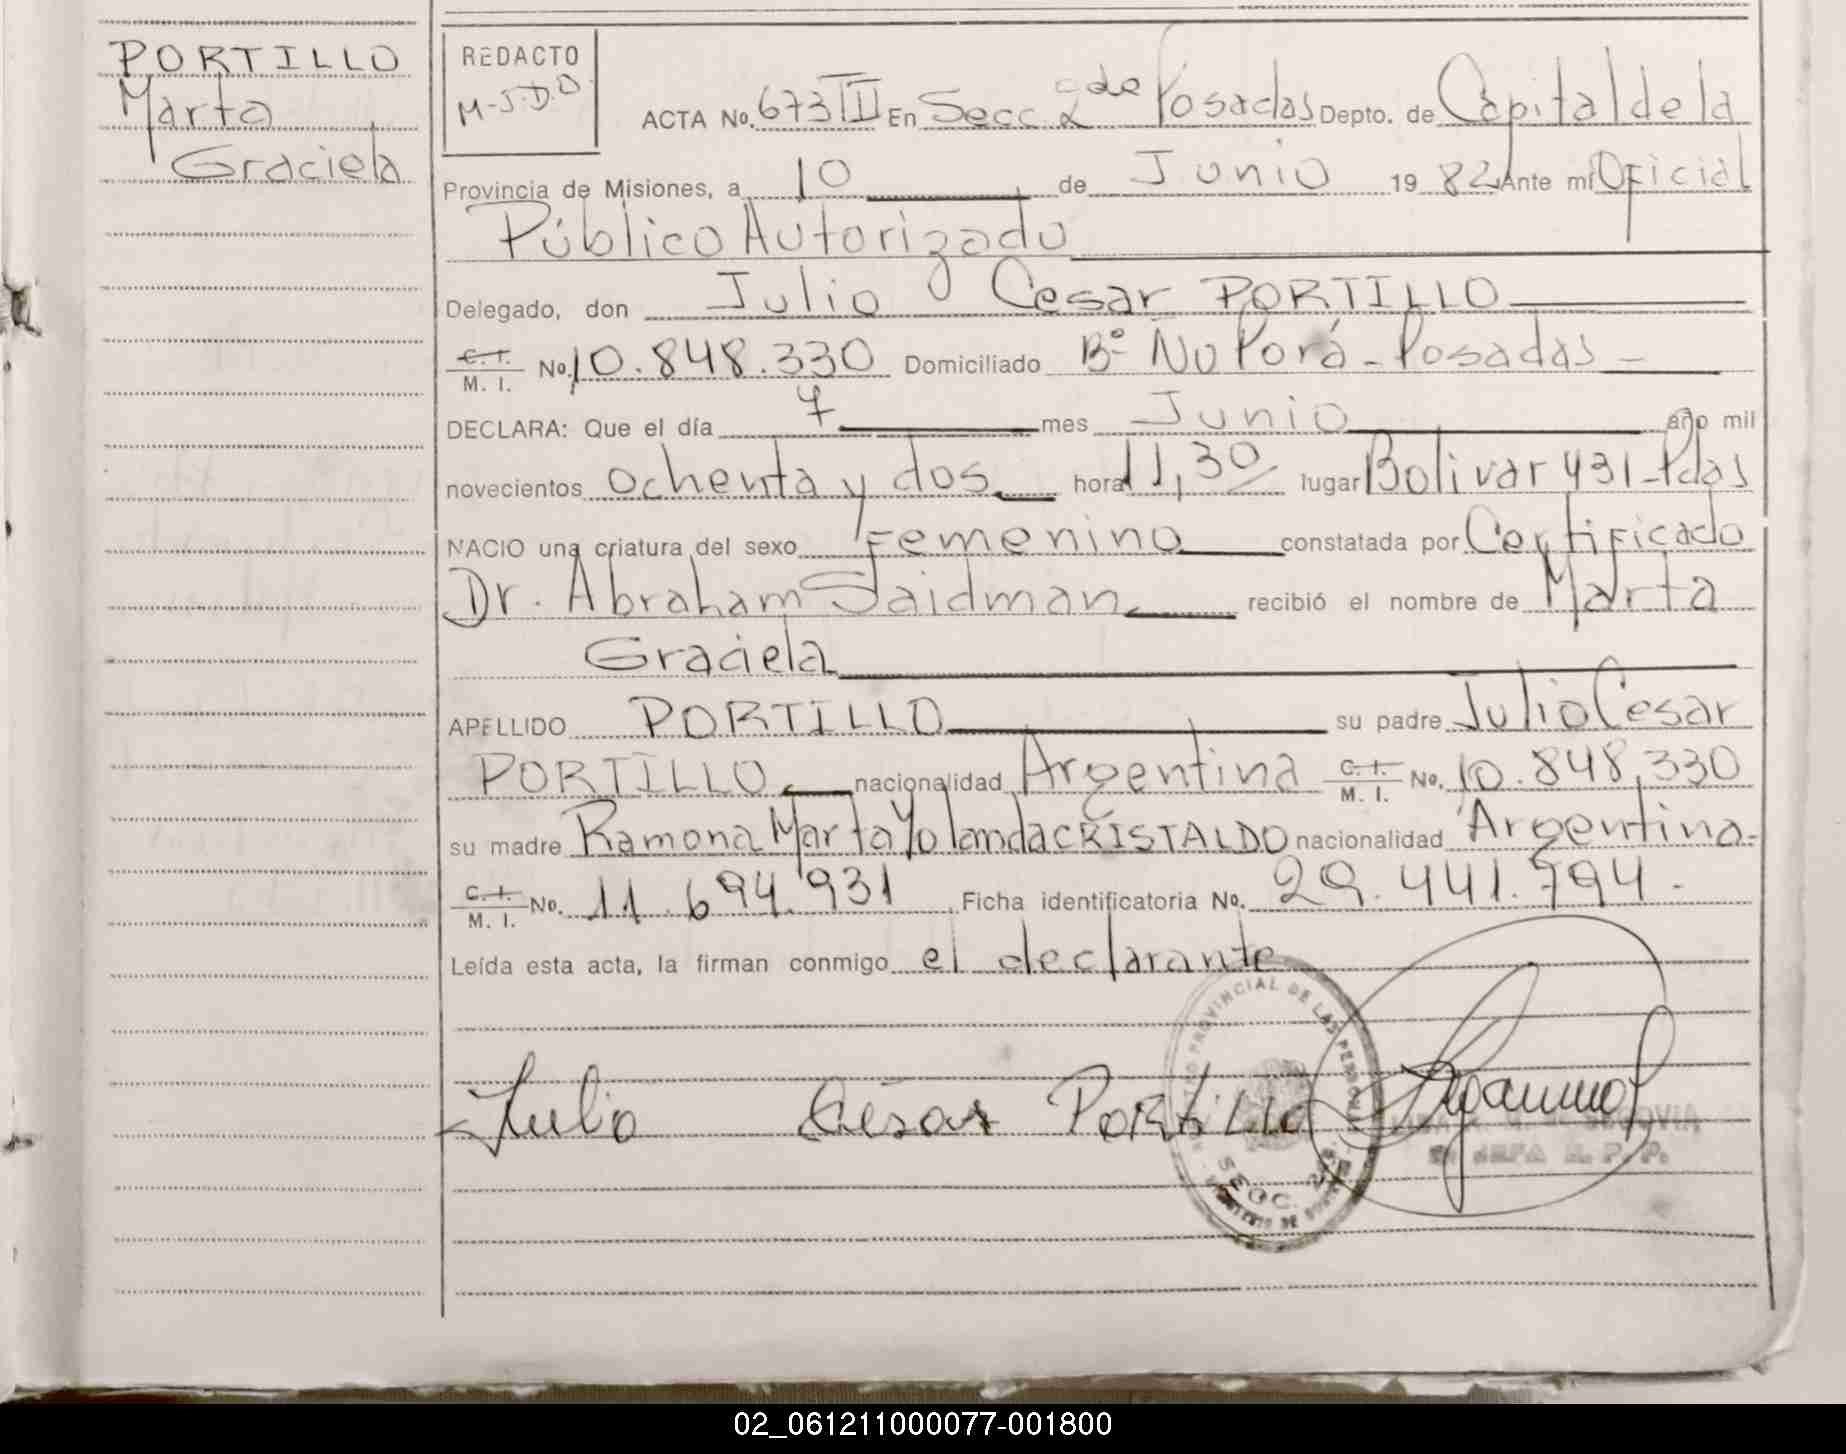 PORTILLO
Marta
Graciela
REDACTO
M-J.D.D.
ACTA No. 673 III En Secc 2da Posadas Depto. de Capital de la
Provincia de Misiones, a 10 de Junio 19 82 Ante mi Oficial
Público Autorizado
Delegado, don Julio Cesar PORTILLO
C.I./M. I. No. 10.848.330 Domiciliado Bº Ñu Porá - Posadas -
DECLARA: Que el día 7 mes Junio año mil
novecientos ochenta y dos hora 11,30 lugar Bolivar 431 - Pdas
NACIO una criatura del sexo Femenino constatada por Certificado
Dr. Abraham Saidman recibió el nombre de Marta
Graciela
APELLIDO PORTILLO su padre Julio Cesar
PORTILLO nacionalidad Argentina C.I./M. I. No. 10.848.330
su madre Ramona Marta Yolanda CRISTALDO nacionalidad Argentina.
C.I./M. I. No. 11.694.931 Ficha identificatoria No. 29.441.794.-
Leída esta acta, la firman conmigo el declarante
Julio César PORtiLLO
PROVINCIAL DE LAS PERSONAS
SECC. 2
JEFA R. P. P.
02_061211000077-001800